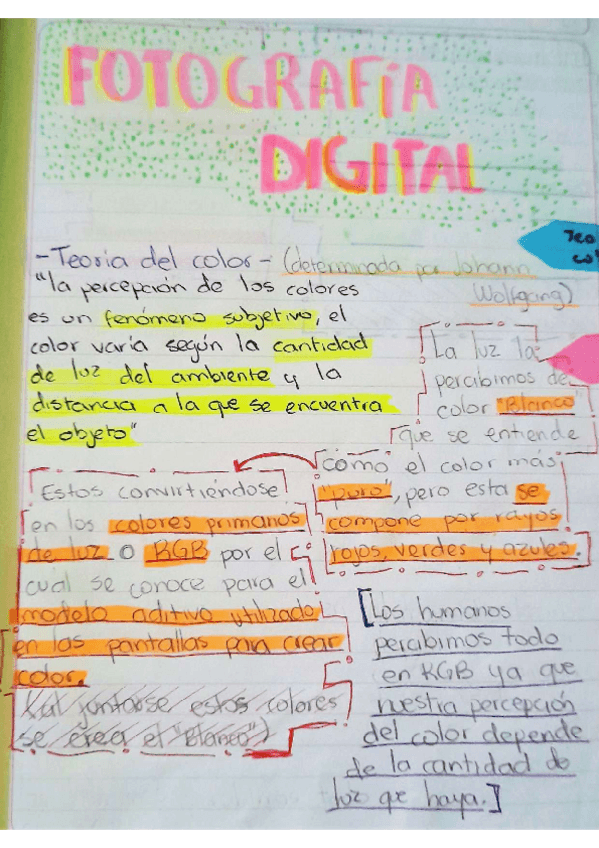 FOTOGRAFÍA
DIGITAL
-Teoría del color- (determinada por Johann
Wolfgang)
"la percepción de los colores
es un fenómeno subjetivo, el
color varía según la cantidad
de luz del ambiente y la
distancia a la que se encuentra
el objeto"
La luz la
percibimos de
color "Blanco"
que se entiende
como el color más
"puro", pero esta se
compone por rayos
rojos, verdes y azules.
Estos convirtiéndose
en los colores primarios
de luz o RGB por el
cual se conoce para el
modelo aditivo utilizado
en las pantallas para crear
color.
(al juntarse estos colores
se crea el "Blanco")
[Los humanos
percibimos todo
en RGB ya que
nuestra percepción
del color depende
de la cantidad de
luz que haya.]